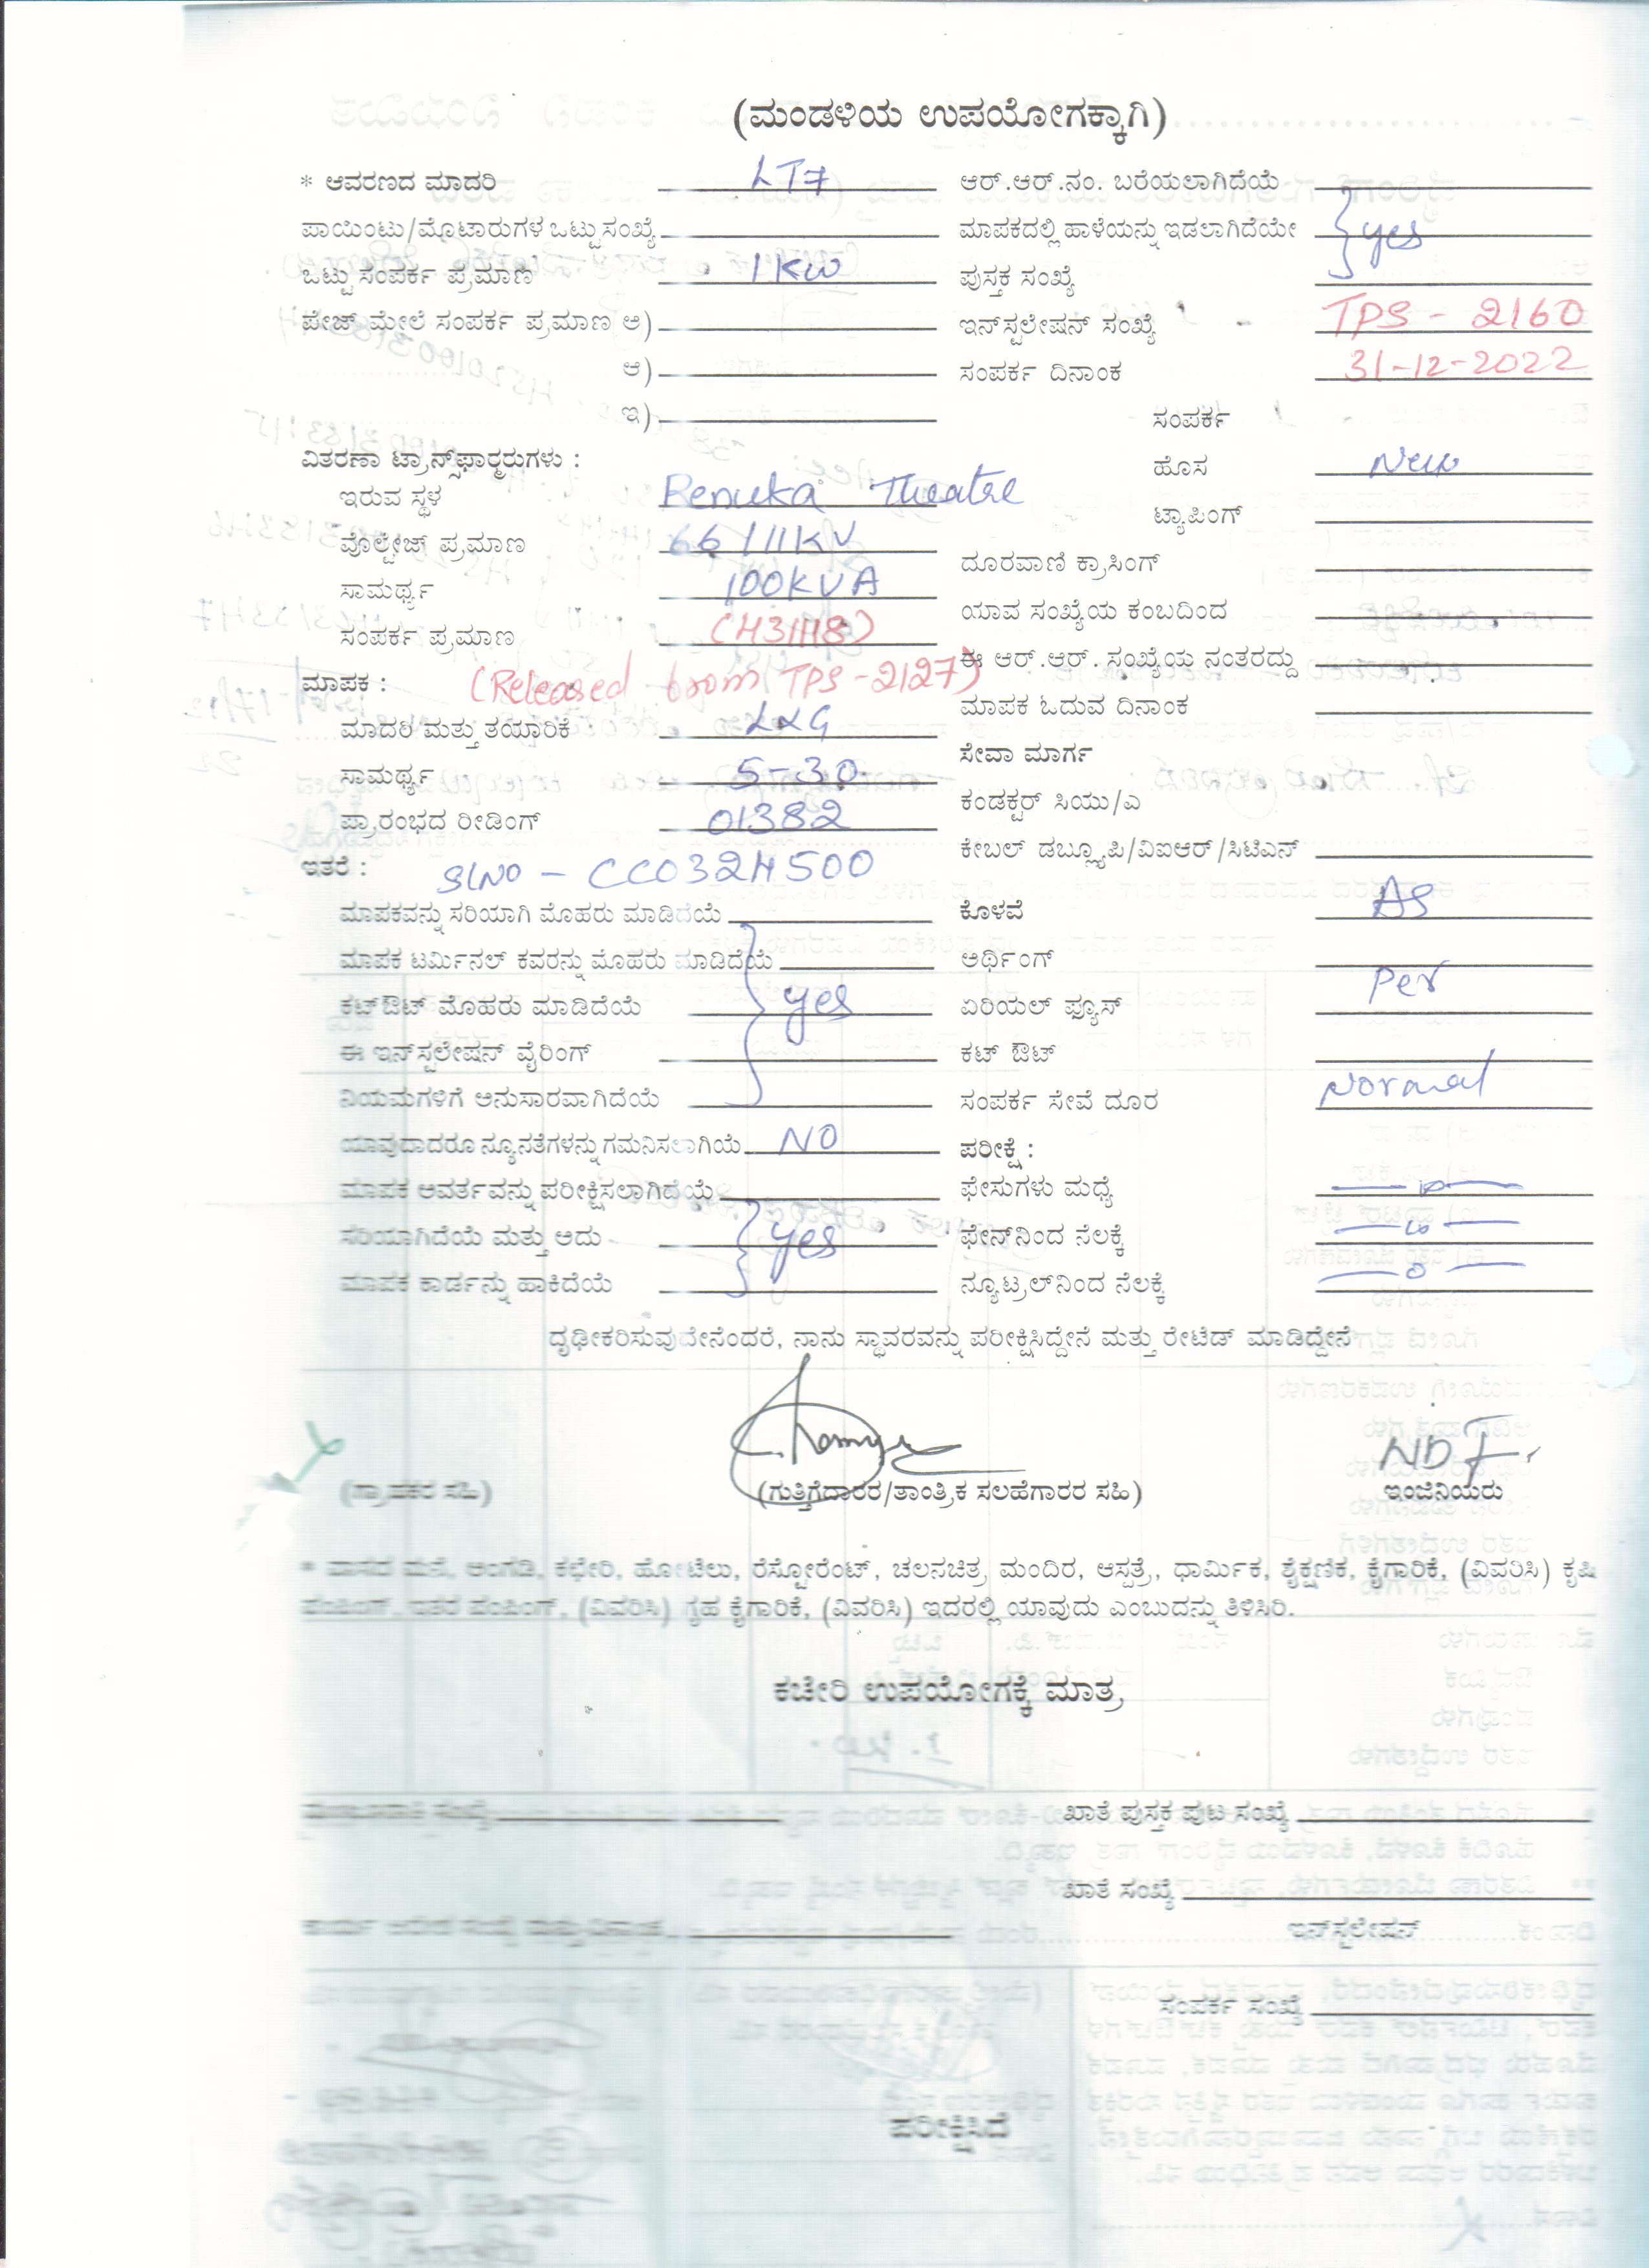 (ಮಂಡಳಿಯ ಉಪಯೋಗಕ್ಕಾಗಿ)
* ಆವರಣದ ಮಾದರಿ LT7
ಪಾಯಿಂಟು/ಮೊಟಾರುಗಳ ಒಟ್ಟು ಸಂಖ್ಯೆ
ಒಟ್ಟು ಸಂಪರ್ಕ ಪ್ರಮಾಣ 1 KW
ಪೇಜ್ ಮೇಲೆ ಸಂಪರ್ಕ ಪ್ರಮಾಣ ಅ)
ಆ)
ಇ)
ವಿತರಣಾ ಟ್ರಾನ್ಸ್‌ಫಾರ್‍ಮರುಗಳು :
ಇರುವ ಸ್ಥಳ Renuka Theatre
ವೊಲ್ಟೇಜ್ ಪ್ರಮಾಣ 66/11KV
ಸಾಮರ್ಥ್ಯ 100KVA
ಸಂಪರ್ಕ ಪ್ರಮಾಣ
ಮಾಪಕ : (Released from TPS-2127)
ಮಾದರಿ ಮತ್ತು ತಯಾರಿಕೆ L&G
ಸಾಮರ್ಥ್ಯ 5-30
ಪ್ರಾರಂಭದ ರೀಡಿಂಗ್ 01382
ಇತರೆ : SlNO - CC032H500
ಮಾಪಕವನ್ನು ಸರಿಯಾಗಿ ಮೊಹರು ಮಾಡಿದೆಯೆ
ಮಾಪಕ ಟರ್ಮಿನಲ್ ಕವರನ್ನು ಮೊಹರು ಮಾಡಿದೆಯೆ
ಕಟ್‌ಔಟ್ ಮೊಹರು ಮಾಡಿದೆಯೆ yes
ಈ ಇನ್‌ಸ್ಟಲೇಷನ್ ವೈರಿಂಗ್
ನಿಯಮಗಳಿಗೆ ಅನುಸಾರವಾಗಿದೆಯೆ
ಯಾವುದಾದರೂ ನ್ಯೂನತೆಗಳನ್ನು ಗಮನಿಸಲಾಗಿಯೆ NO
ಮಾಪಕ ಆವರ್ತವನ್ನು ಪರೀಕ್ಷಿಸಲಾಗಿದೆಯೆ
ಸರಿಯಾಗಿದೆಯೆ ಮತ್ತು ಅದು yes
ಮಾಪಕ ಕಾರ್ಡನ್ನು ಹಾಕಿದೆಯೆ
ಆರ್.ಆರ್.ನಂ. ಬರೆಯಲಾಗಿದೆಯೆ
ಮಾಪಕದಲ್ಲಿ ಹಾಳೆಯನ್ನು ಇಡಲಾಗಿದೆಯೇ yes
ಪುಸ್ತಕ ಸಂಖ್ಯೆ
ಇನ್‌ಸ್ಟಲೇಷನ್ ಸಂಖ್ಯೆ TPS - 2160
ಸಂಪರ್ಕ ದಿನಾಂಕ 31-12-2022
ಸಂಪರ್ಕ
ಹೊಸ New
ಟ್ಯಾಪಿಂಗ್
ದೂರವಾಣಿ ಕ್ರಾಸಿಂಗ್
ಯಾವ ಸಂಖ್ಯೆಯ ಕಂಬದಿಂದ
ಈ ಆರ್.ಆರ್. ಸಂಖ್ಯೆಯ ನಂತರದ್ದು
ಮಾಪಕ ಓದುವ ದಿನಾಂಕ
ಸೇವಾ ಮಾರ್ಗ
ಕಂಡಕ್ಟರ್ ಸಿಯು/ಎ
ಕೇಬಲ್ ಡಬ್ಲ್ಯೂಪಿ/ವಿಐಆರ್/ಸಿಟಿಎಸ್
ಕೊಳವೆ AS
ಅರ್ಥಿಂಗ್
ಏರಿಯಲ್ ಫ್ಯೂಸ್ Per
ಕಟ್ ಔಟ್
ಸಂಪರ್ಕ ಸೇವೆ ದೂರ Normal
ಪರೀಕ್ಷೆ :
ಫೇಸುಗಳು ಮಧ್ಯೆ
ಫೇಸ್‌ನಿಂದ ನೆಲಕ್ಕೆ
ನ್ಯೂಟ್ರಲ್‌ನಿಂದ ನೆಲಕ್ಕೆ
ದೃಢೀಕರಿಸುವುದೇನೆಂದರೆ, ನಾನು ಸ್ಥಾವರವನ್ನು ಪರೀಕ್ಷಿಸಿದ್ದೇನೆ ಮತ್ತು ರೇಟೆಡ್ ಮಾಡಿದ್ದೇನೆ
(ಗ್ರಾಹಕರ ಸಹಿ) (ಗುತ್ತಿಗೆದಾರರ/ತಾಂತ್ರಿಕ ಸಲಹೆಗಾರರ ಸಹಿ) ಇಂಜಿನಿಯರು
* ವಾಸದ ಮನೆ, ಅಂಗಡಿ, ಕಛೇರಿ, ಹೋಟೆಲು, ರೆಸ್ಟೋರೆಂಟ್, ಚಲನಚಿತ್ರ ಮಂದಿರ, ಆಸ್ಪತ್ರೆ, ಧಾರ್ಮಿಕ, ಶೈಕ್ಷಣಿಕ, ಕೈಗಾರಿಕೆ, (ವಿವರಿಸಿ) ಕೃಷಿ
ಪಂಪಿಂಗ್, ಇತರೆ ಪಂಪಿಂಗ್, (ವಿವರಿಸಿ) ಗೃಹ ಕೈಗಾರಿಕೆ, (ವಿವರಿಸಿ) ಇದರಲ್ಲಿ ಯಾವುದು ಎಂಬುದನ್ನು ತಿಳಿಸಿರಿ.
ಕಚೇರಿ ಉಪಯೋಗಕ್ಕೆ ಮಾತ್ರ
ಖಾತೆ ಪುಸ್ತಕ ಪುಟ ಸಂಖ್ಯೆ
ಖಾತೆ ಸಂಖ್ಯೆ
ಇನ್‌ಸ್ಟಲೇಷನ್
ಸಂಪರ್ಕ ಸಂಖ್ಯೆ
ಪರೀಕ್ಷಿಸಿದೆ